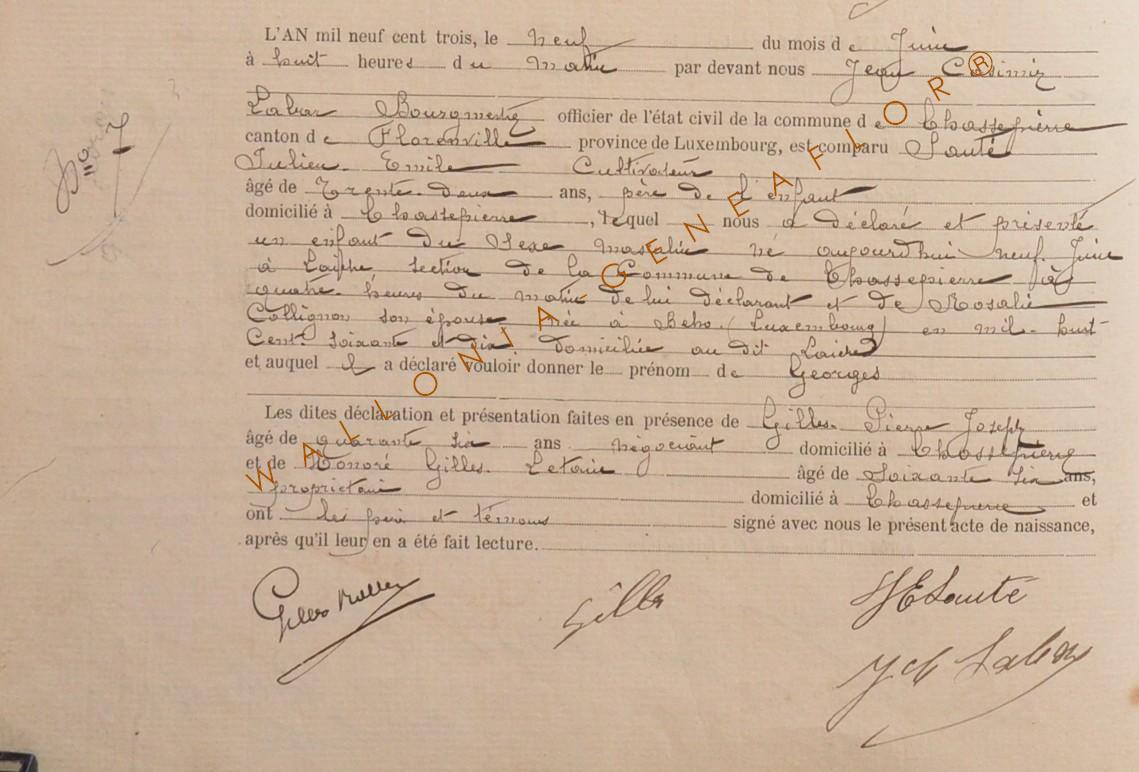 L'AN mil neuf cent trois, le neuf du mois de Juin
à huit heures du matin par devant nous Jean Casimir
Labar Bourgmestre officier de l'état civil de la commune de Chassepierre
canton de Florenville province de Luxembourg, est comparu Santé
Julien Emile Cultivateur
âgé de Trente-deux ans, père de l'enfant
domicilié à Chassepierre, lequel nous a déclaré et présenté
un enfant du Sexe masculin né aujourd'hui neuf Juin
à Laiche section de la Commune de Chassepierre à
quatre heures du matin de lui déclarant et de Rosalie
Collignon son épouse née à Beho (Luxembourg) en mil huit
Cent soixante et dix domiciliée au dit Laiche
et auquel il a déclaré vouloir donner le prénom de Georges
Les dites déclaration et présentation faites en présence de Gilles Pierre Joseph
âgé de quarante six ans négociant domicilié à Chassepierre
et de Honoré Gilles âgé de Soixante six ans,
propriétaire domicilié à Chassepierre et
ont les père et témoins signé avec nous le présent acte de naissance,
après qu'il leur en a été fait lecture.
No 7
Gilles
Gilles
JESanté
J Labar
WALLONIA GENEAFLORR®